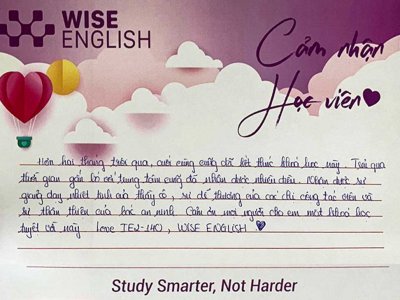 WISE
ENGLISH
Cảm nhận
Học viên
Hơn hai tháng trôi qua, cuối cùng cũng đã kết thúc khoá học này. Trải qua
thời gian gắn bó với trung tâm cũng đã nhận được nhiều điều. Nhận được sự
giảng dạy nhiệt tình của thầy cô, sự dễ thương của các chị cộng tác viên và
sự thân thiện của học an ninh. Cảm ơn mọi người cho em một khoá học
tuyệt vời này love IE2-140, WISE ENGLISH
Study Smarter, Not Harder